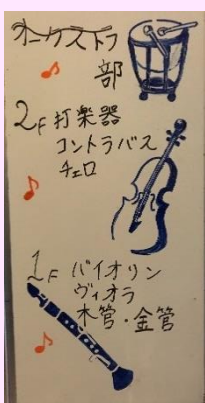 オーケストラ
部
2F 打楽器
コントラバス
チェロ
1F バイオリン
ヴィオラ
木管・金管